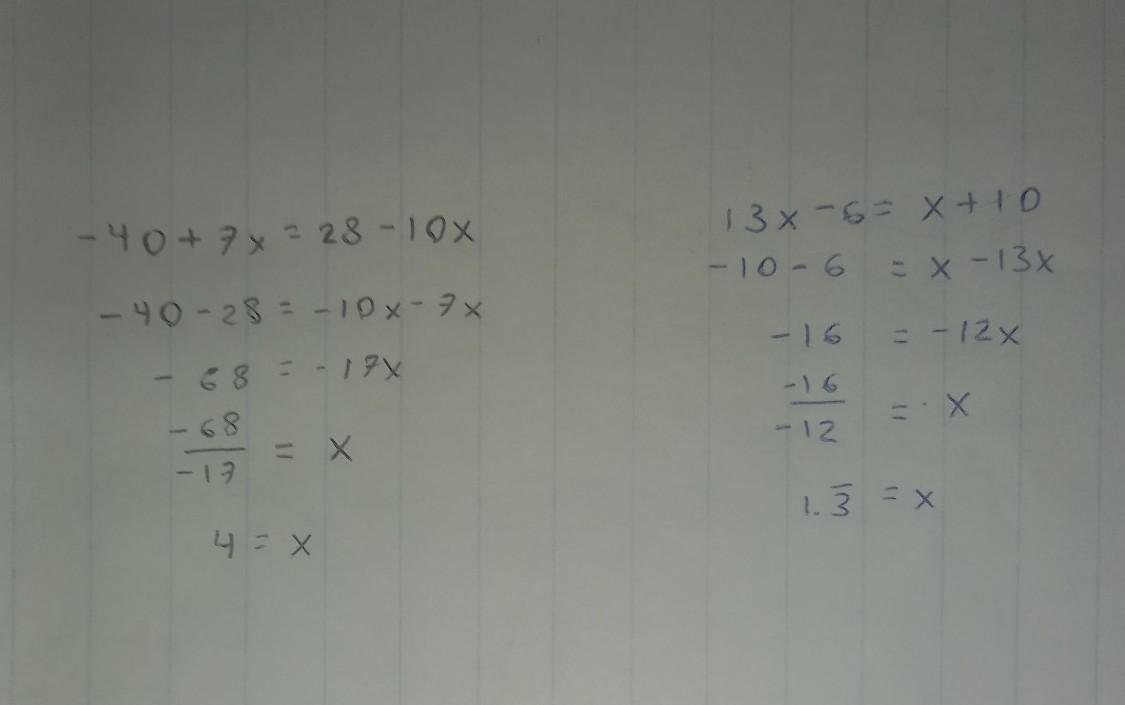 -40+7x=28-10x
-40-28=-10x-7x
-68=-17x
-68
-17
= x
4=x
13x-6=x+10
-10-6=x-13x
-16=-12x
-16
-12
= x
1.3̅=x